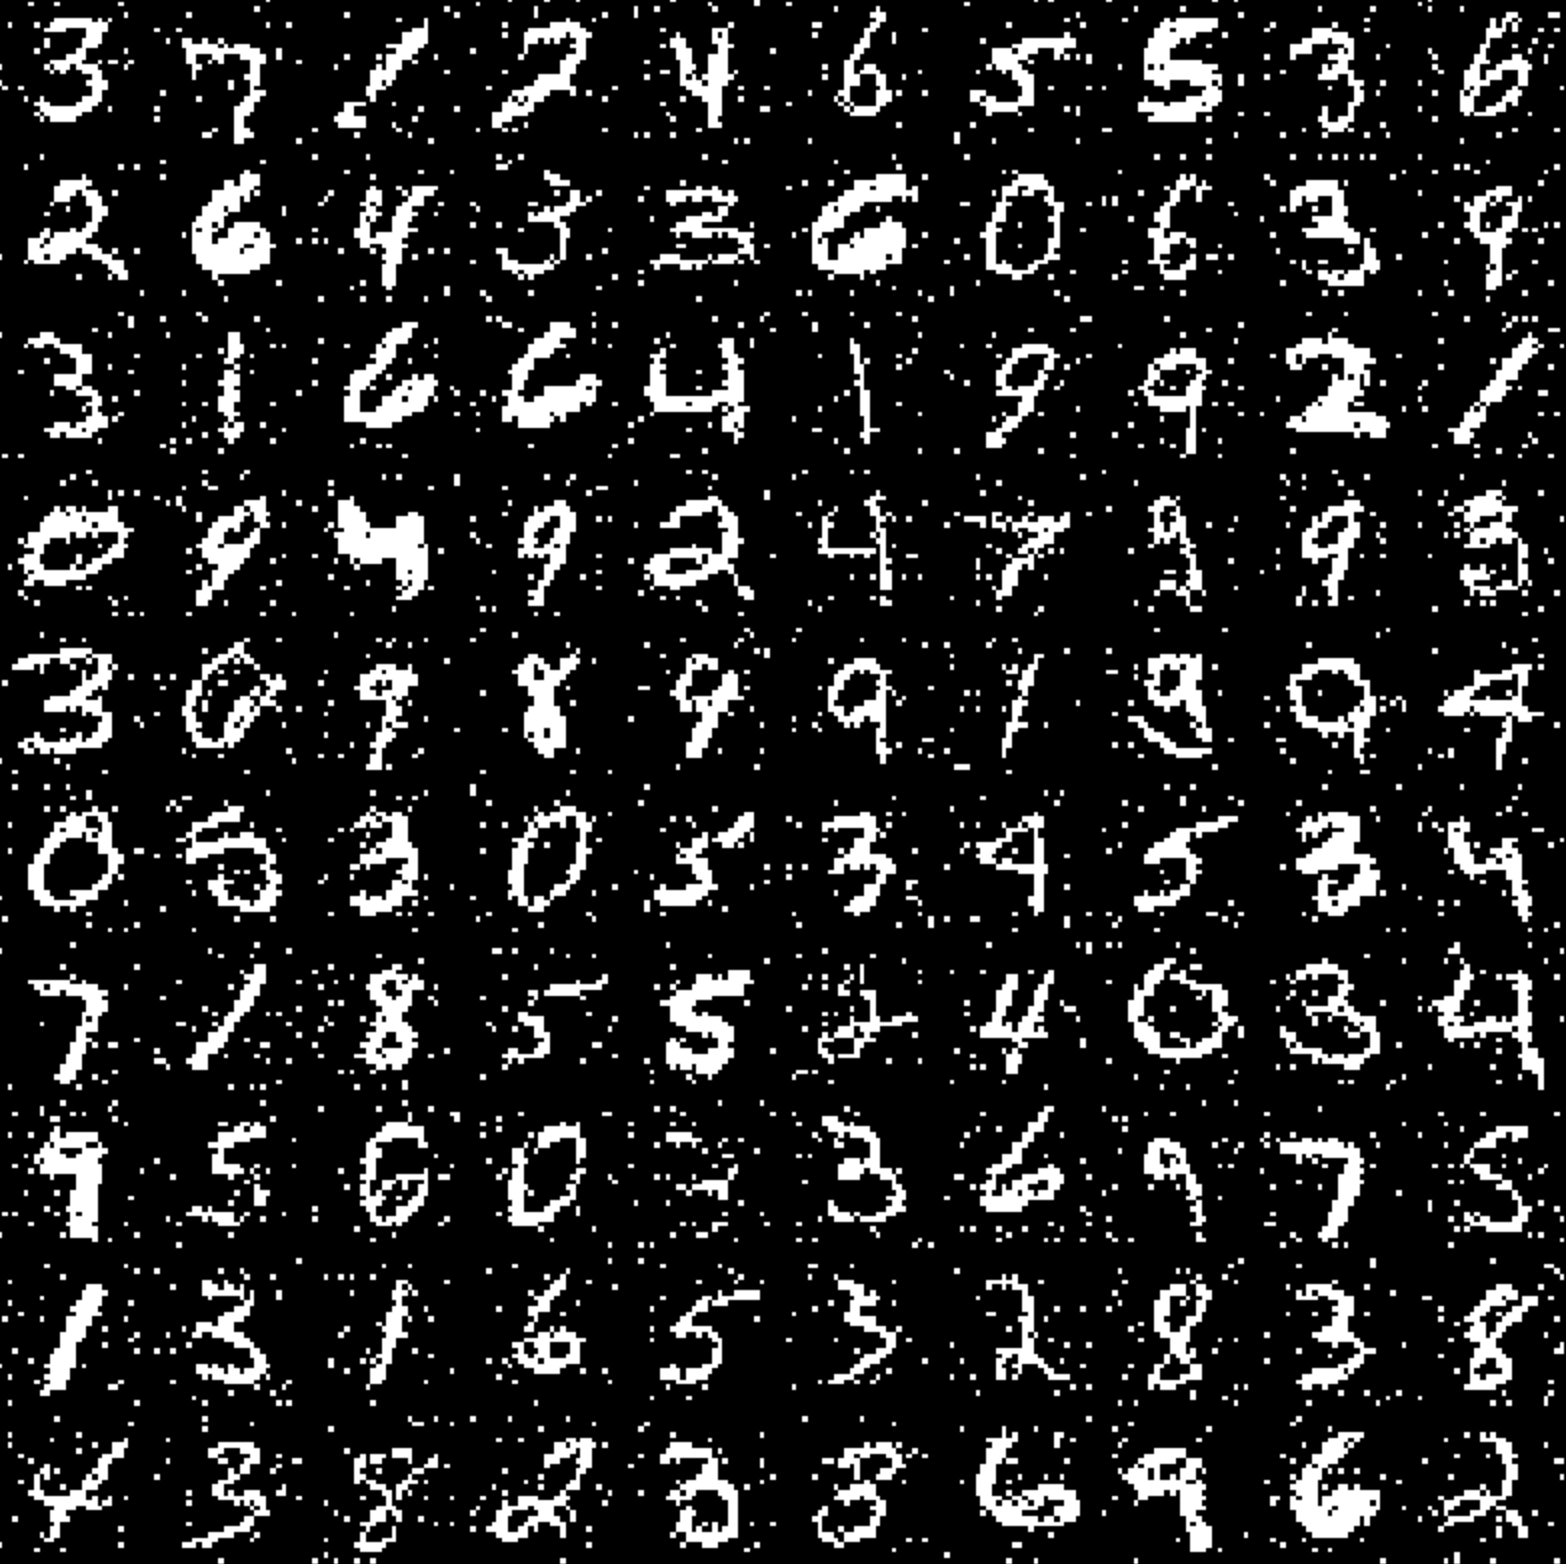 3 7 1 2 4 6 5 5 3 6
2 6 4 3 3 6 0 6 3 9
3 1 6 6 4 1 9 9 2 1
0 9 4 9 2 4 7 9 3
3 9 8 9 9 1 9 9 4
0 3 0 5 3 4 5 8 4
7 1 8 5 5 2 4 0 3 4
9 5 0 3 6 9 7 5
1 3 1 6 5 3 2 8 3 8
4 3 8 2 3 8 6 9 6 2